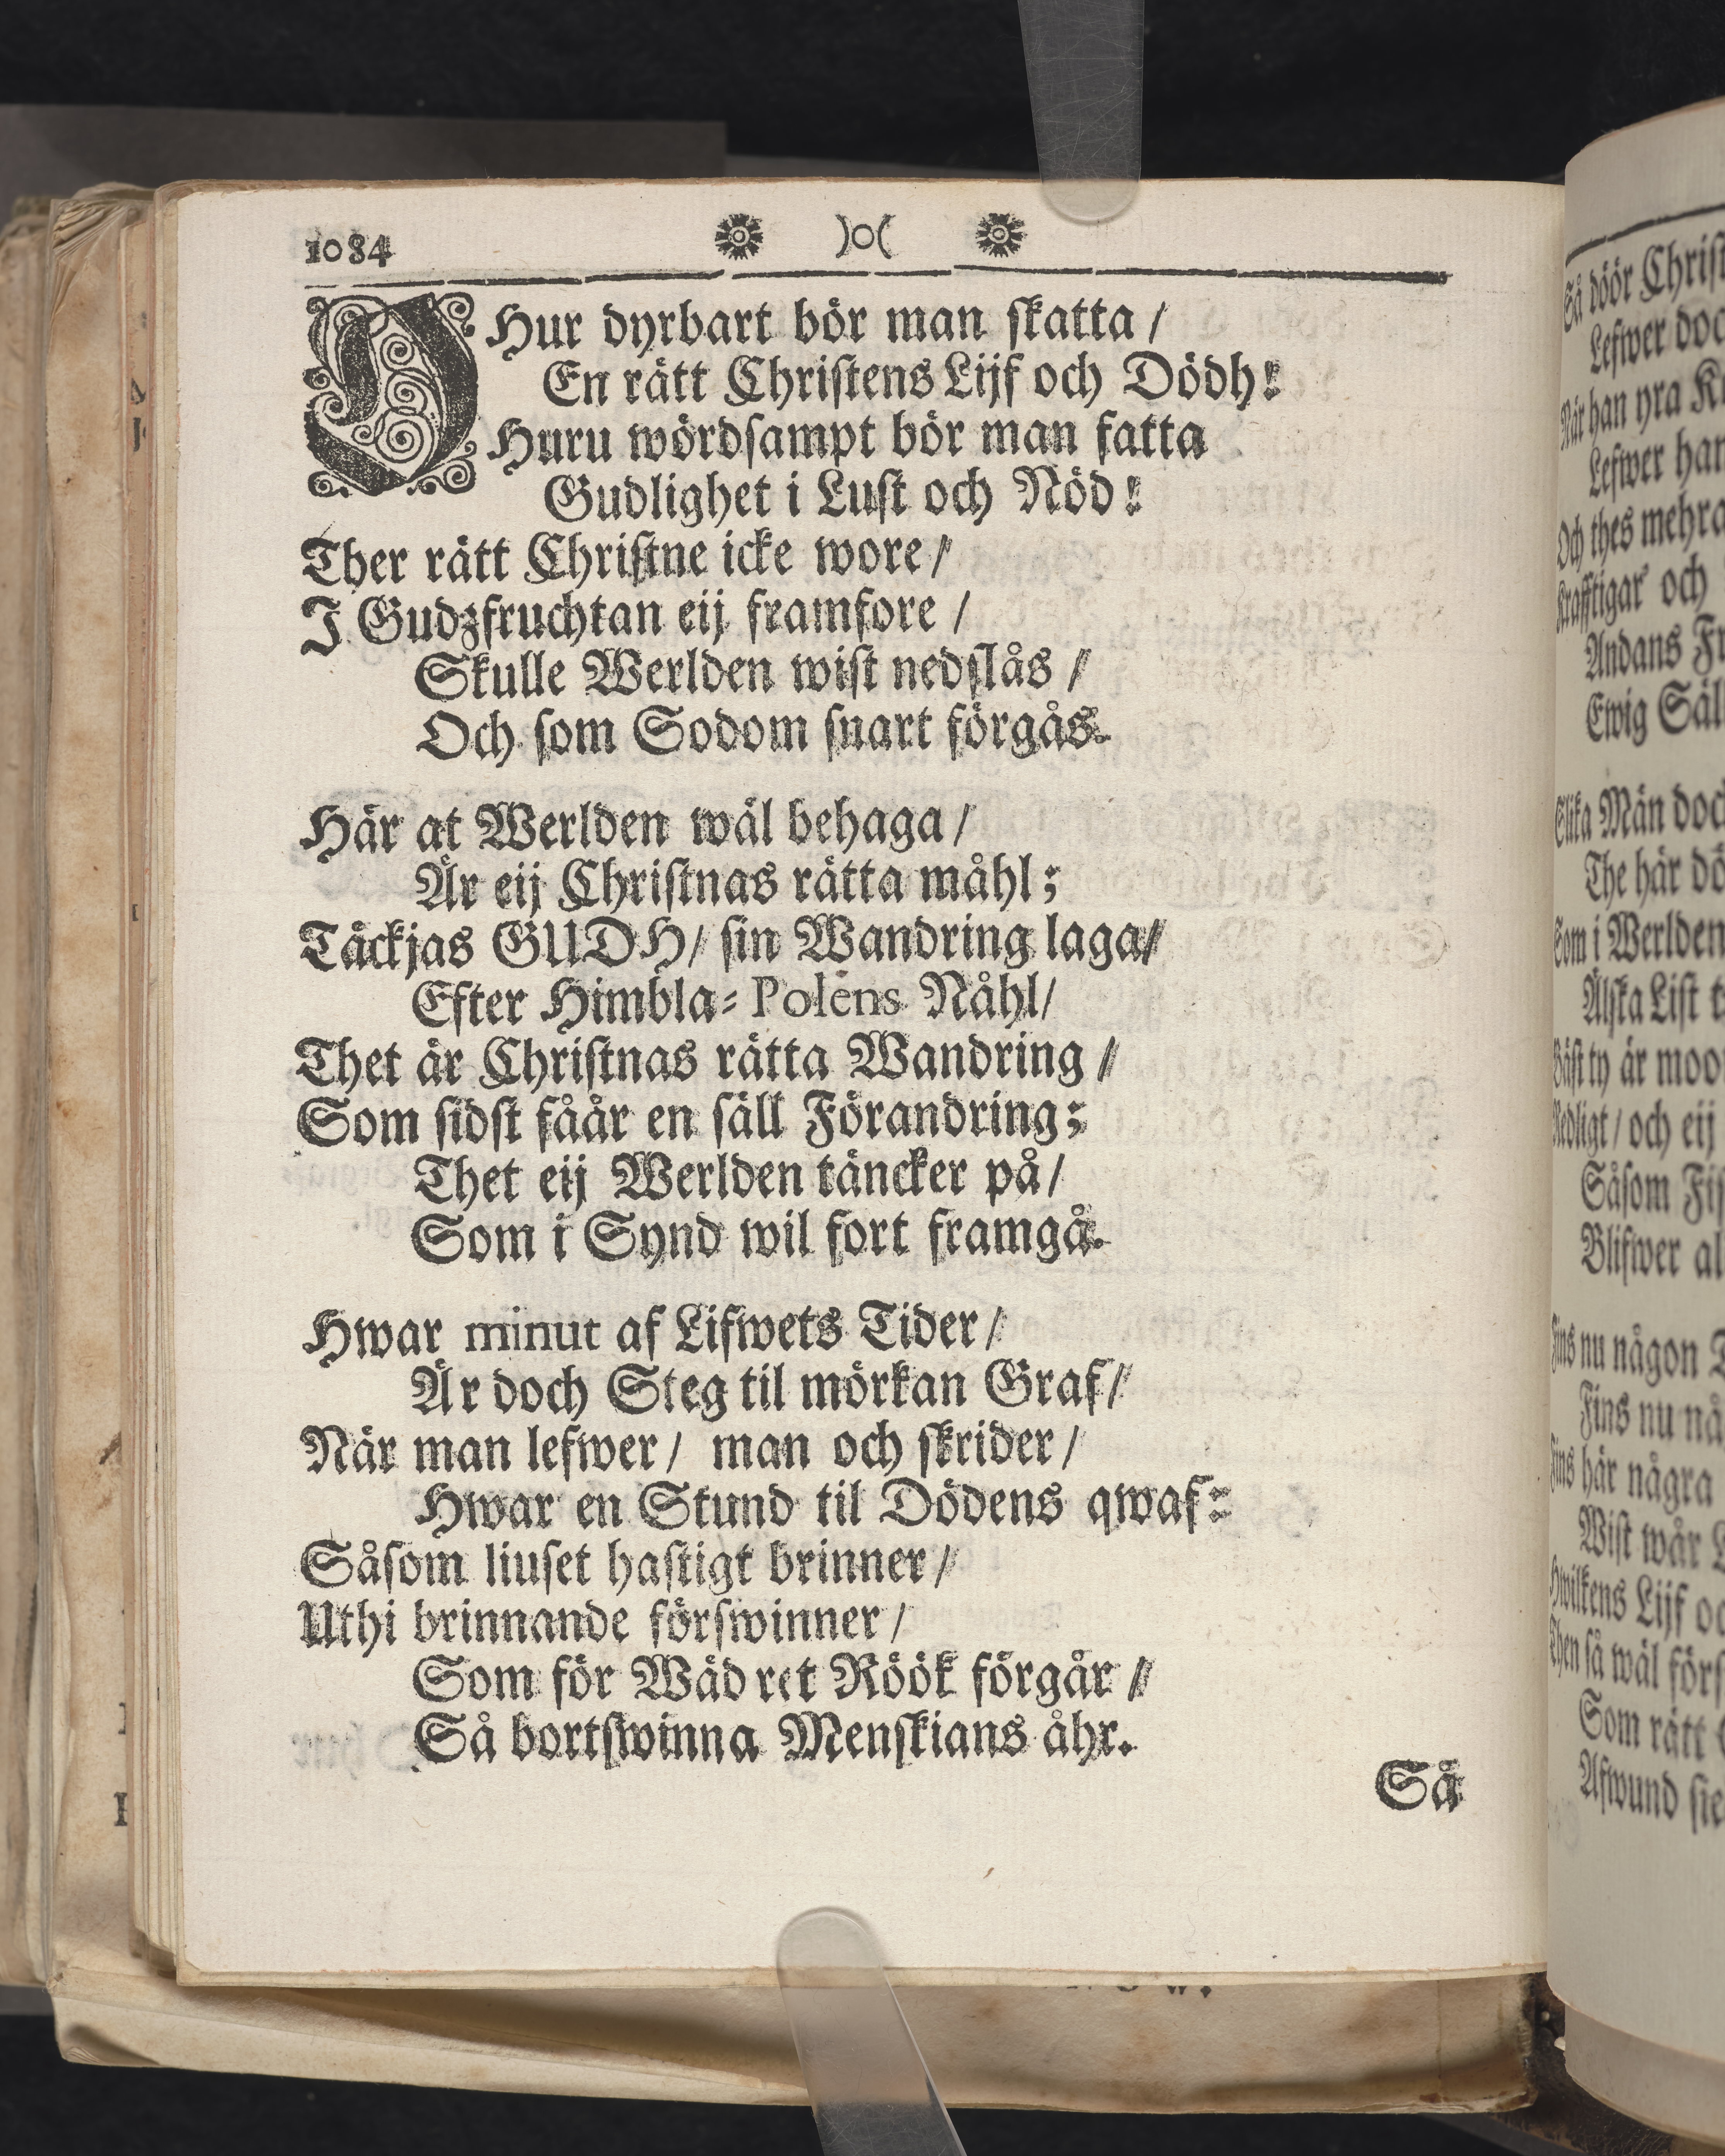 1084 )o(
O Hur dyrbart bör man skatta /
En rätt Christens Lijf och Dödh!
Huru wördsampt bör man fatta
Gudlighet i Lust och Nöd!
Ther rätt Christne icke wore /
I Gudzfruchtan eij framfore /
Skulle Werlden wist nedslås /
Och som Sodom snart förgås.
Här at Werlden wäl behaga /
Är eij Christnas rätta måhl;
Täckjas GUDH / sin Wandring laga /
Efter Himbla-Polens Nåhl /
Thet är Christnas rätta Wandring /
Som sidst fåår en säll Förandring;
Thet eij Werlden täncker på /
Som i Synd wil fort framgå.
Hwar minut af Lifwets Tider /
Är doch Steg til mörkan Graf /
När man lefwer / man och skrider /
Hwar en Stund til Dödens qwaf:
Såsom liuset hastigt brinner /
Uthi brinnande förswinner /
Som för Wädret Röök förgår /
Så bortswinna Menskians åhr.
Så
Så döör Christ
Lefwer doc
När han yra
Lefwer han
Och thes mehra
Krafftigar och
Andans
Ewig Säl
Slika Män doc
The här dö
Som i Werlden
Älska List
Bäst ty är moo
Redligt / och eij
Såsom
Blifwer al
Fins nu någon
Fins nu nå
Fins här några
Wist wår
Hwilkens Lijf oc
Then så wäl förs
Som rätt
Afwund sie